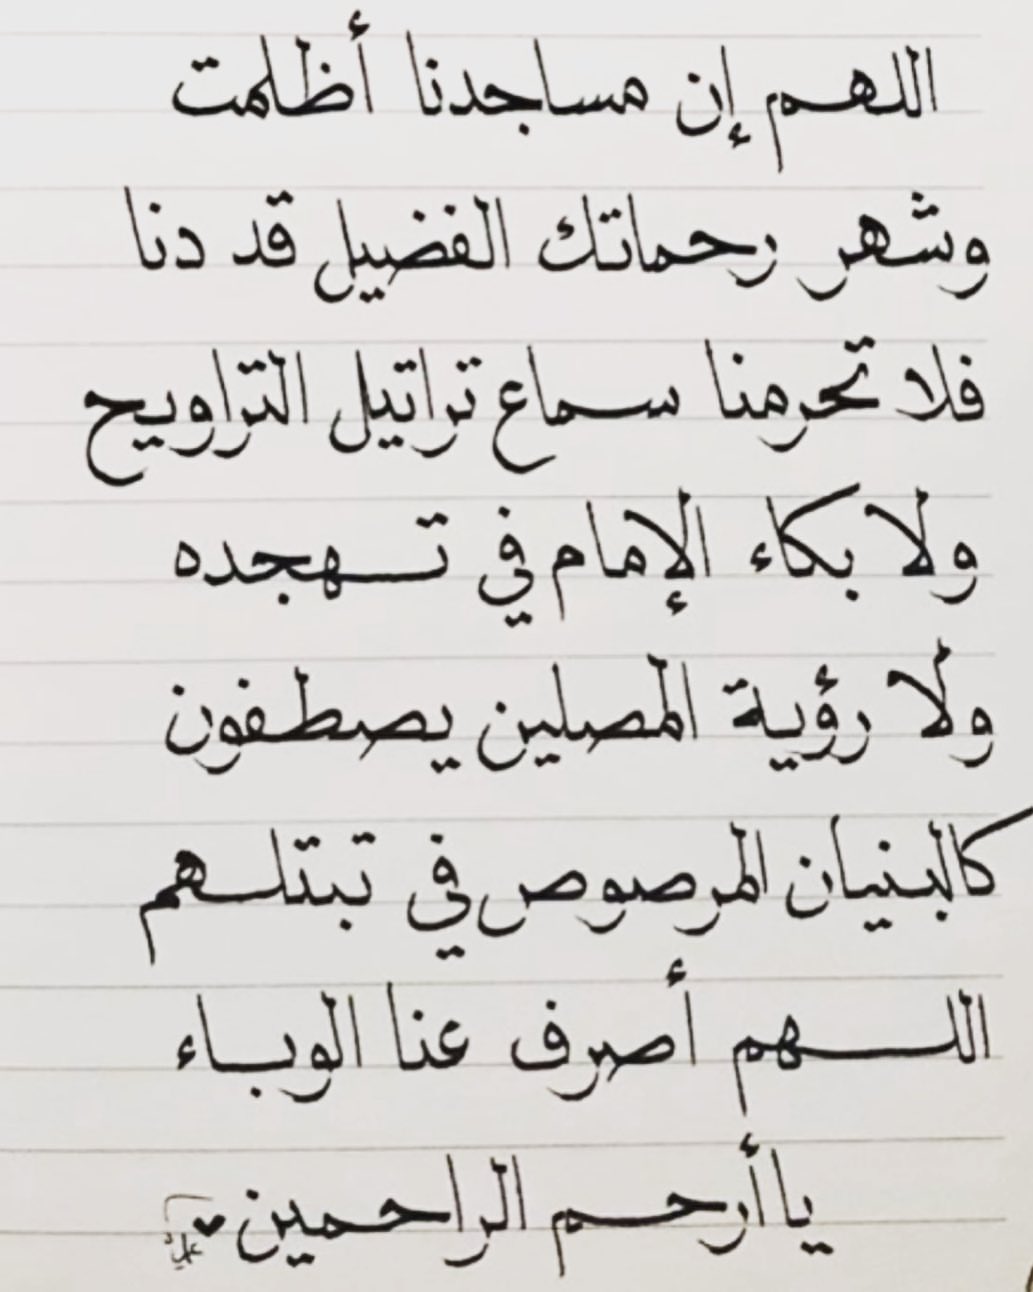 اللهم إن مساجدنا أظلمت
وشهر رحماتك الفضيل قد دنا
فلا تحرمنا سماع تراتيل التراويح
ولا بكاء الإمام في تهجده
ولا رؤية المصلين يصطفون
كالبنيان المرصوص في تبتلهم
اللهم أصرف عنا الوباء
يا أرحم الراحمين